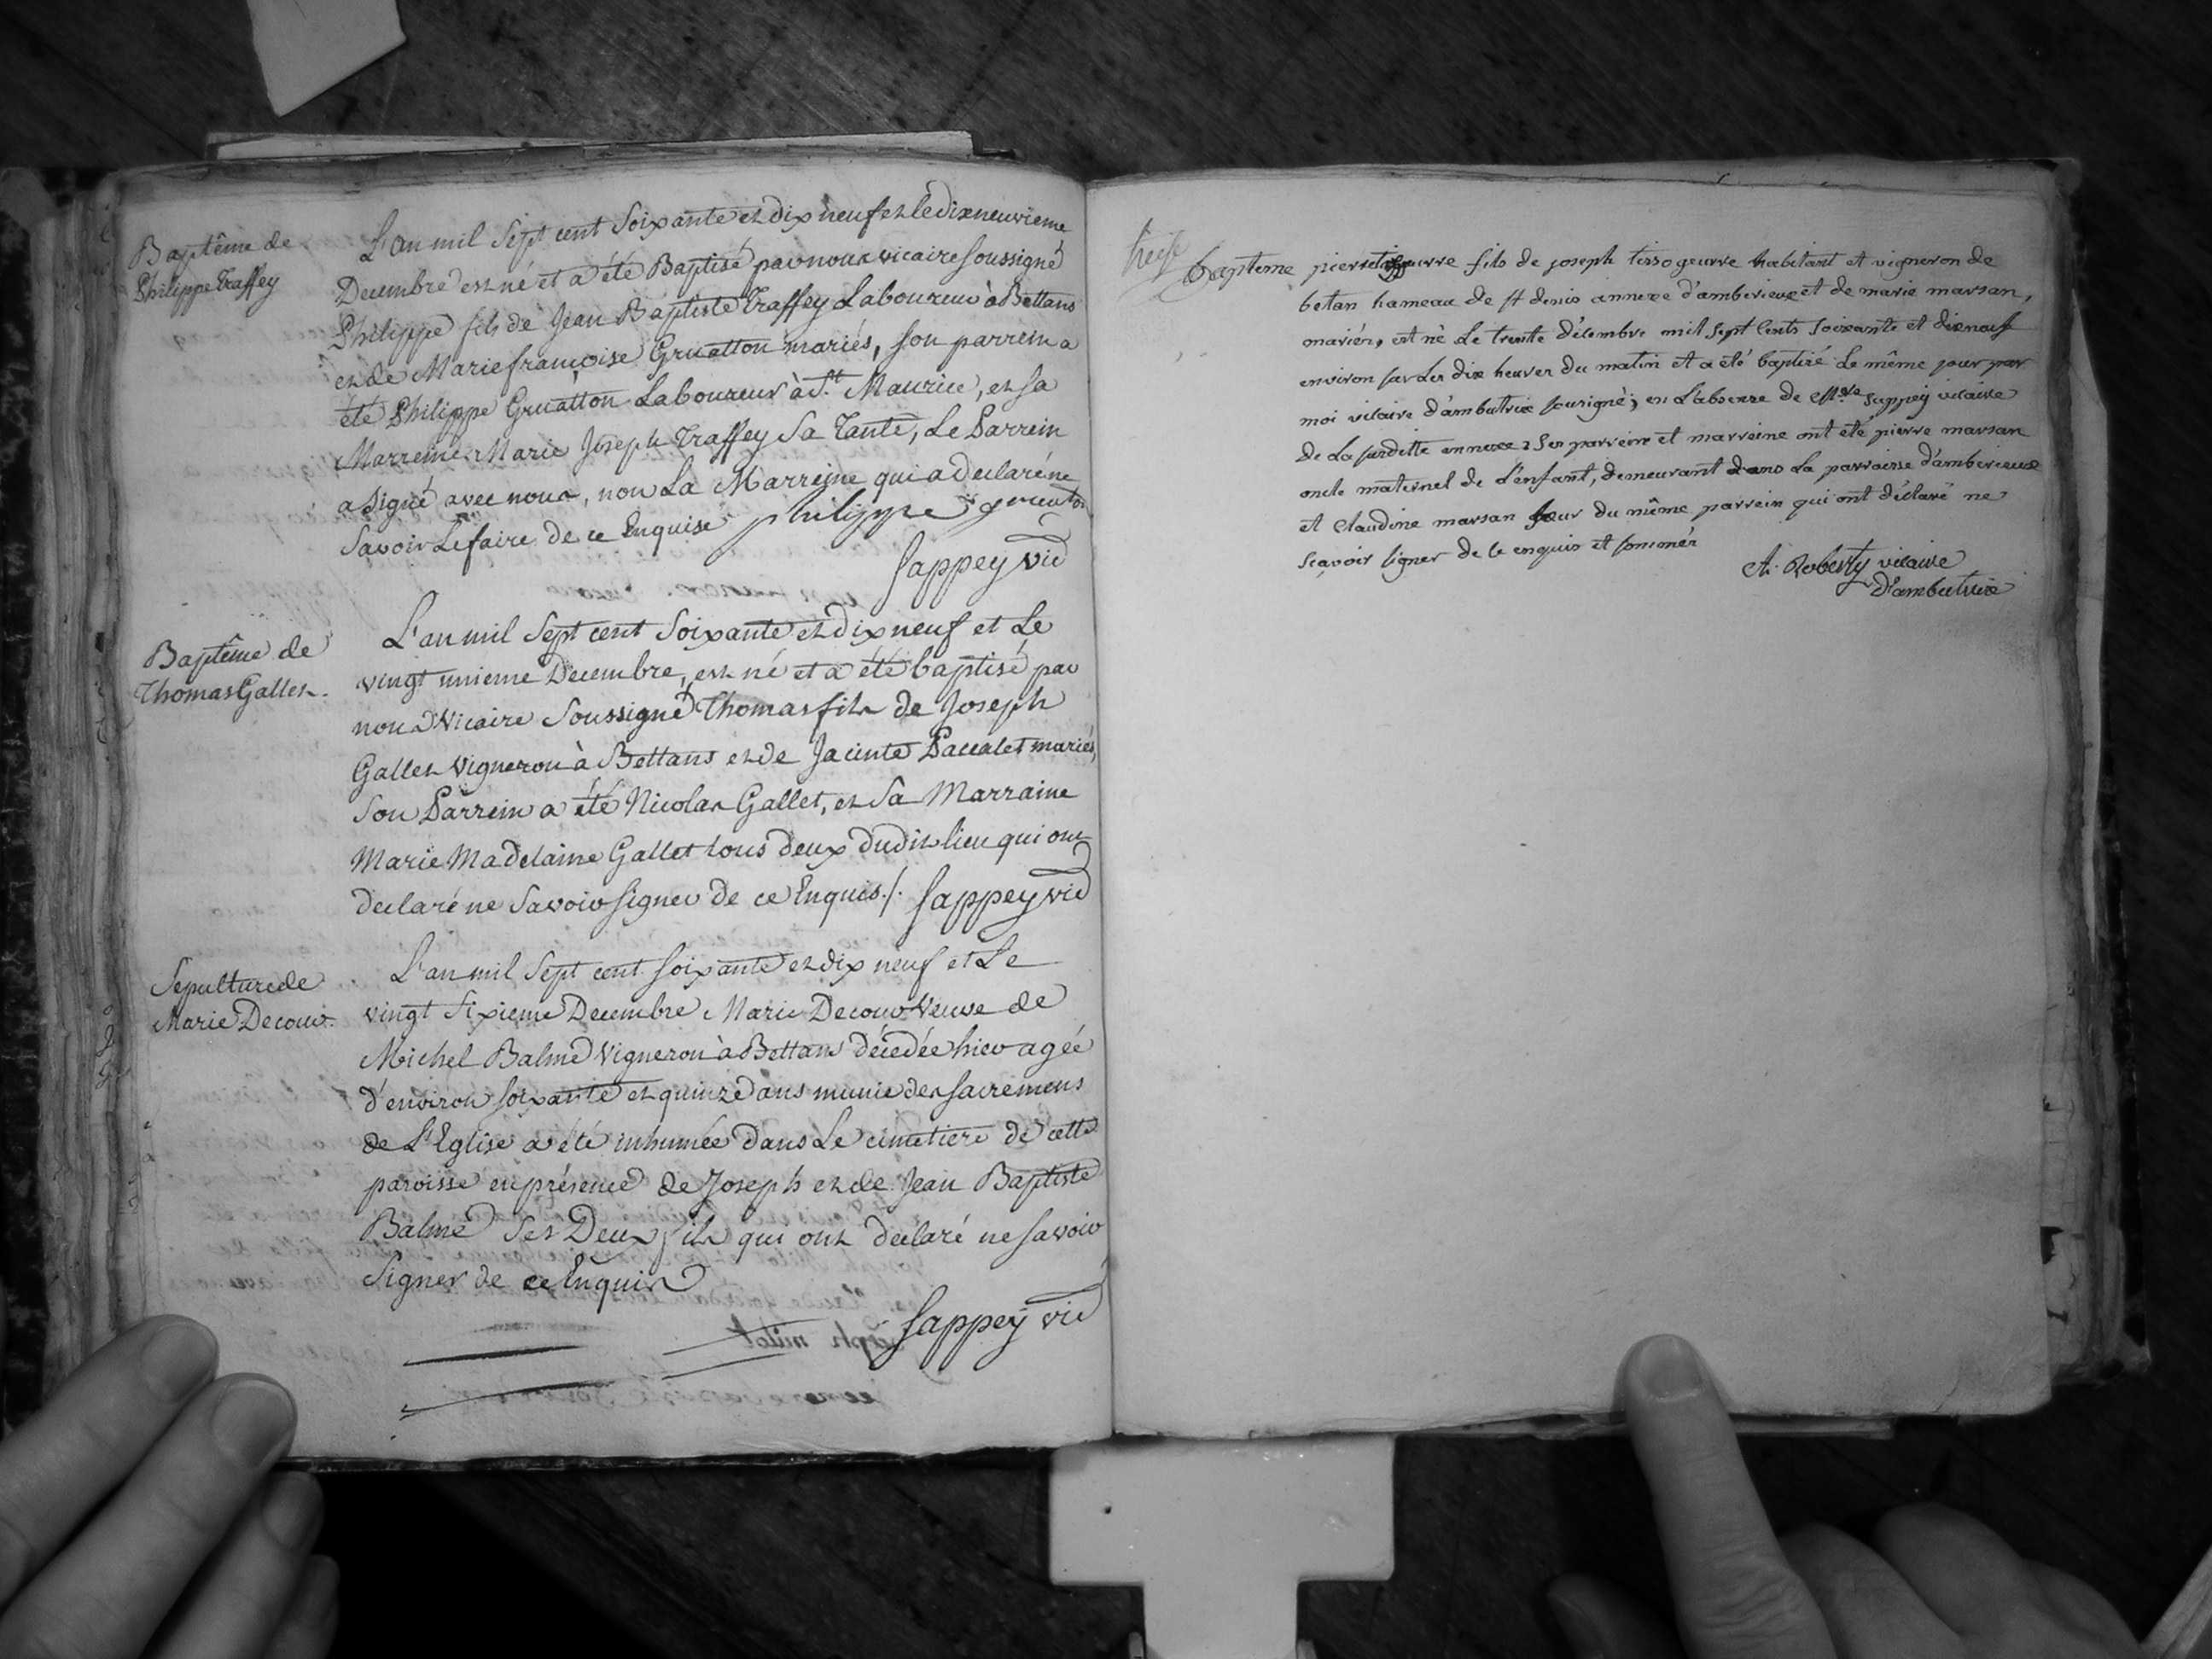 Baptême de
Philippe Traffey
L'an mil Sept cent Soixante et dix neuf et le dixneuvieme
Decembre est né et a été Baptisé par nous vicaire soussigné
Philippe fils de Jean Baptiste Traffey Laboureur à Bettans
et de Marie françoise Gruatton mariés, son parrein a
été Philippe Gruatton Laboureur à St. Maurice, et sa
Marreine Marie Joseph Traffey Sa Tante, Le Parrein
a signé avec nous, non La Marreine qui a declaré ne
Savoir Le faire de ce Enquise philippe gruaton
Sappey vic
Baptême de
Thomas Gallet.
L'an mil Sept cent Soixante et dix neuf et Le
vingt unieme Decembre, est né et a été baptisé par
nous Vicaire Soussigné Thomas fils de Joseph
Gallet Vigneron à Bettans et de Jacinte Paccalet mariés,
Son Parrein a été Nicolas Gallet, et Sa Marraine
Marie Madelaine Gallet tous deux dudit lieu qui ont
declaré ne Savoir signer de ce Enquis./. Sappey vic
Sepulture de
Marie Decour.
L'an mil Sept cent soixante et dix neuf et Le
vingt Sixieme Decembre Marie Decour Veuve de
Michel Balme Vigneron à Bettans décedée hier agée
d'environ soixante et quinze ans munie des sacremens
de L'Eglise a été inhumée dans Le cimetiere de cette
paroisse en présence de Joseph et de Jean Baptiste
Balme Ses Deux fils qui ont déclaré ne savoir
Signer de ce Enquis
Sappey vic
bapteme pierre fils de joseph tissogeuvre habitant et vigneron de
betan hameau de st denis annexe d'amberieux et de marie marsan,
mariés, est né Le trente décembre mil sept cents soixante et dixneuf
environ sur Les dix heures du matin et a été baptisé Le même jour par
moi vicaire d'ambutrix sousigné; en L'absence de Sappey vicaire
de La susditte annexe; Ses parrein et marreine ont été pierre marsan
oncle maternel de L'enfant, demeurant dans La parroisse d'amberieux
et Claudine marsan soeur du même parrein qui ont déclaré ne
sçavoir signer de ce enquis et sommés
Roberty vicaire
d'ambutrix